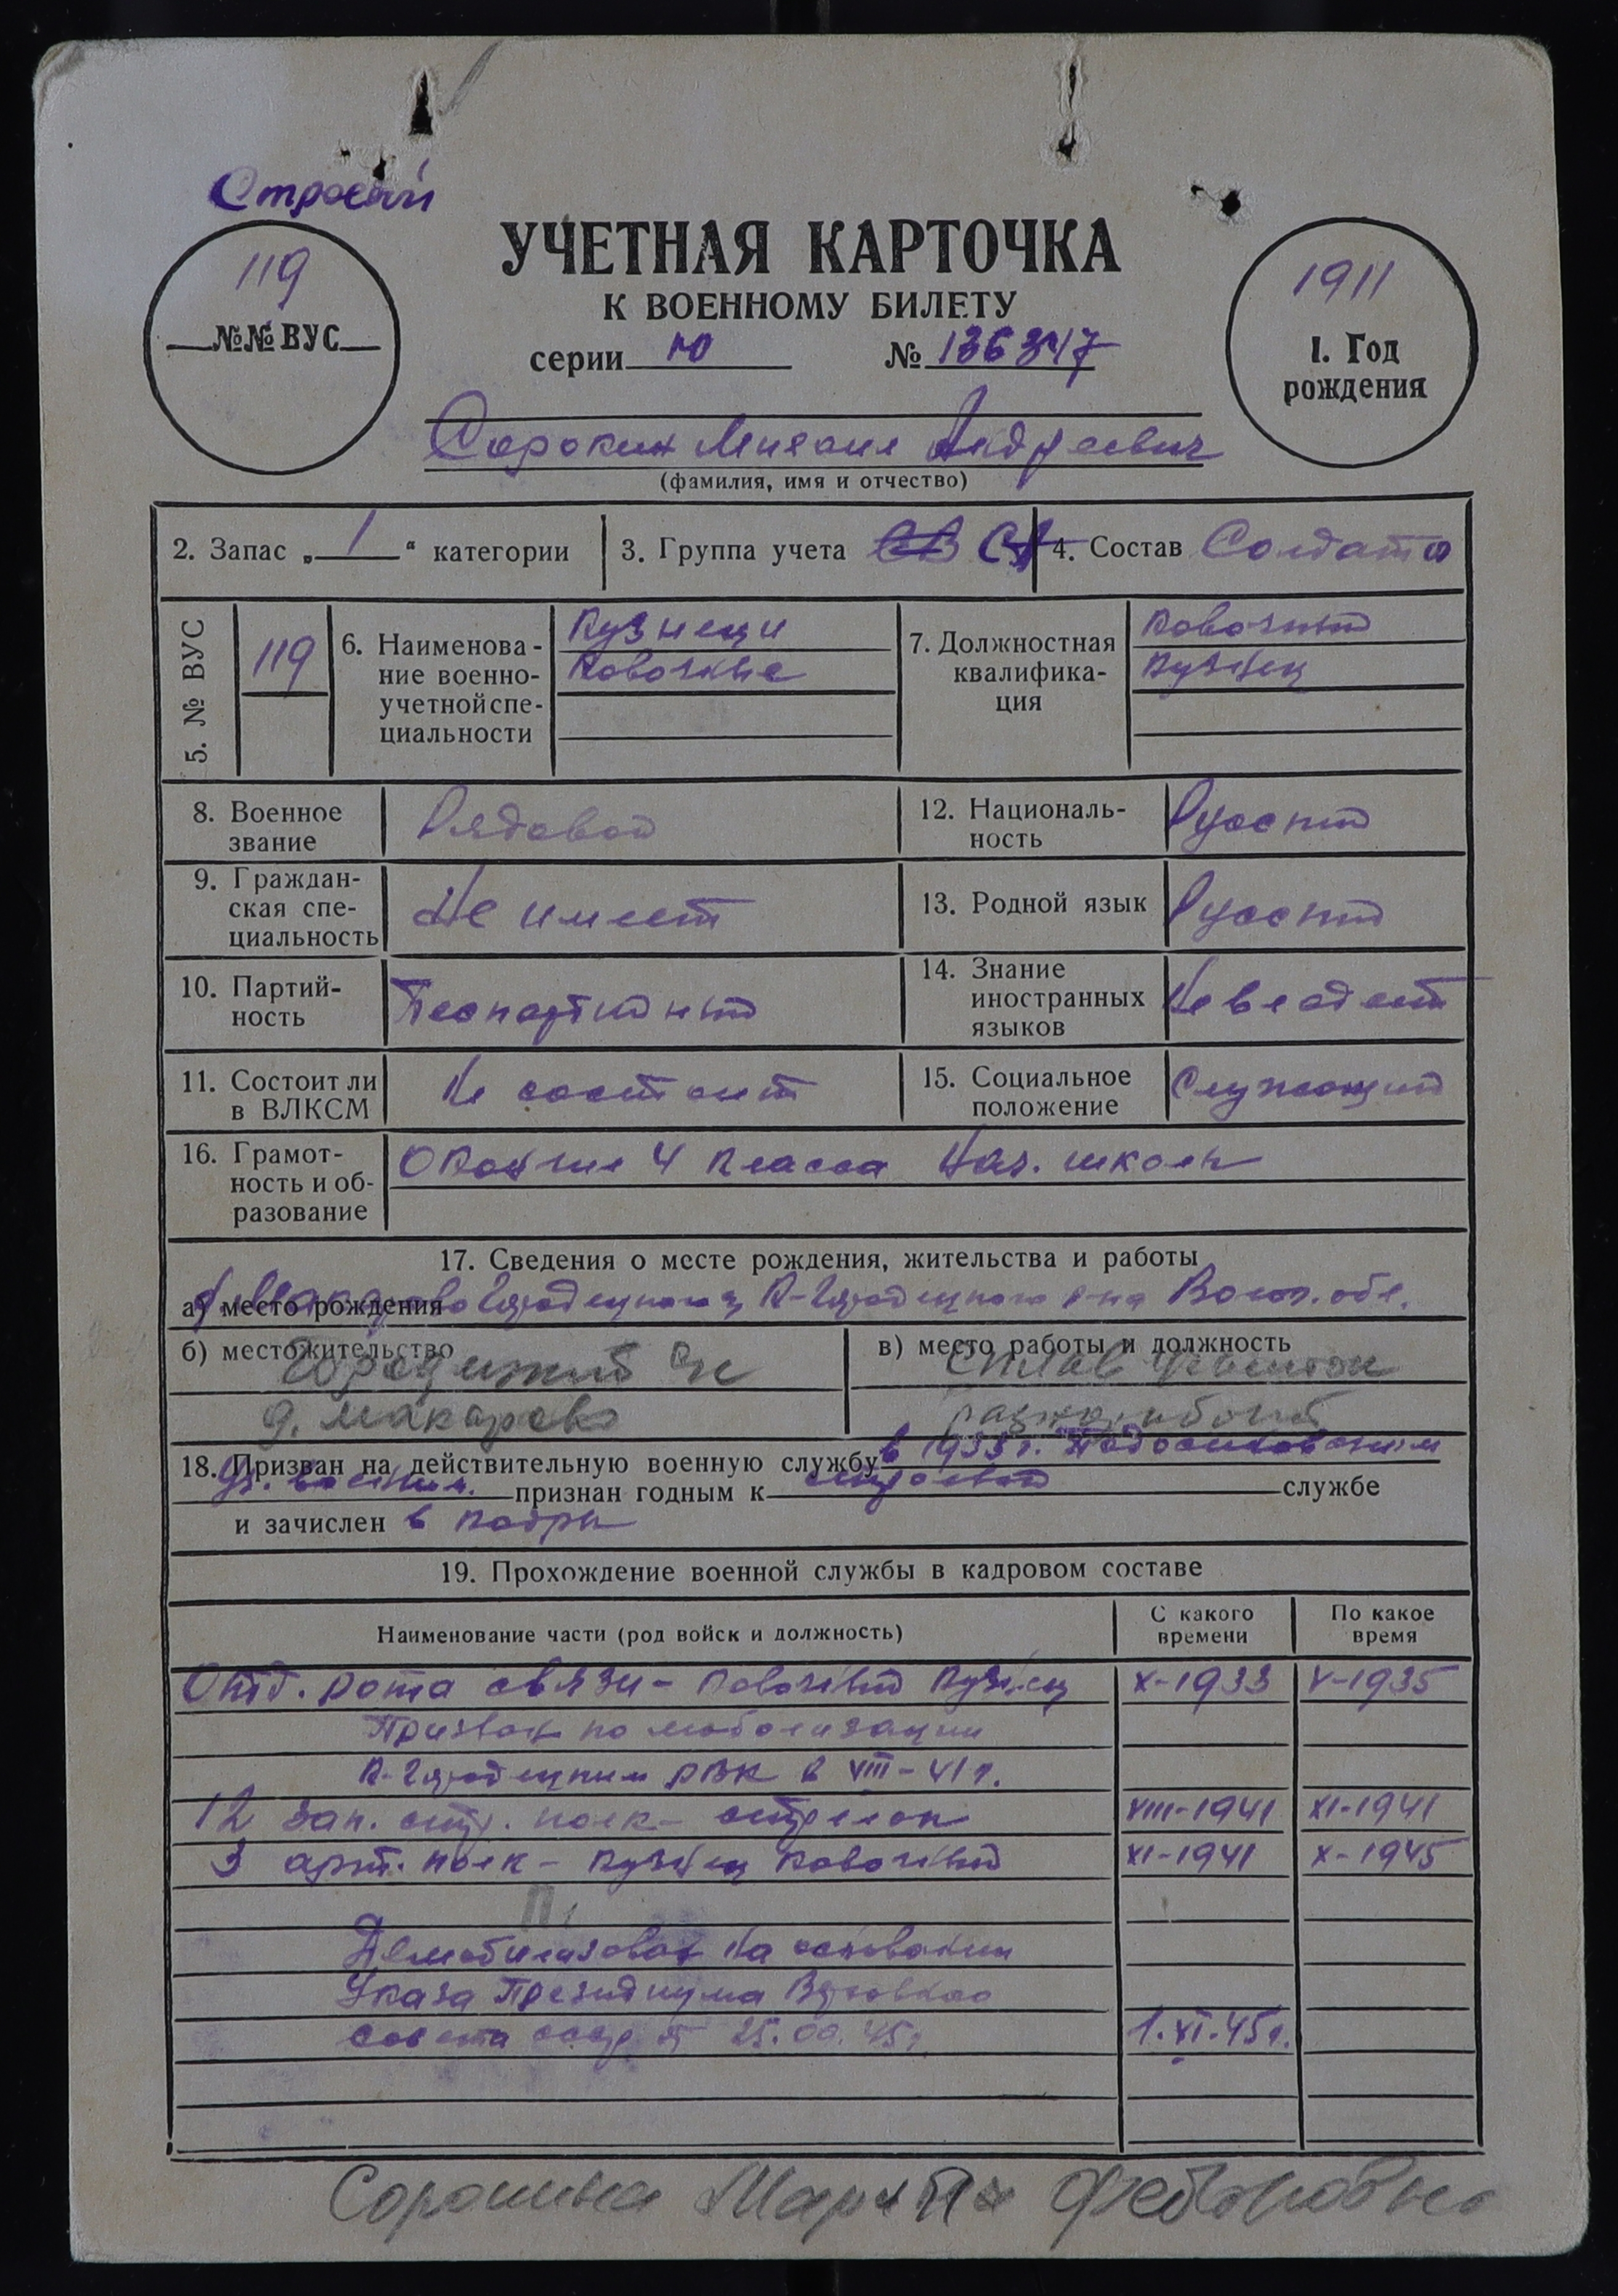 Строевой
119
№№ ВУС
УЧЕТНАЯ КАРТОЧКА
К ВОЕННОМУ БИЛЕТУ
серии № 136347
1911
1. Год
рождения
Сорокин Михаил Андреевич
(фамилия, имя и отчество)
2. Запас „ 1 “ категории
3. Группа учета СА
4. Состав Солдаты
5. № ВУС
119
6. Наименова-
ние военно-
учетной спе-
циальности
Кузнецы
Ковочные
7. Должностная
квалифика-
ция
Ковочный
кузнец
8. Военное
звание
Рядовой
12. Националь-
ность
Русский
9. Граждан-
ская спе-
циальность
Не имеет
13. Родной язык
Русский
10. Партий-
ность
Беспартийный
14. Знание
иностранных
языков
Не владеет
11. Состоит ли
в ВЛКСМ
Не состоит
15. Социальное
положение
Служащий
16. Грамот-
ность и об-
разование
Окончил 4 класса Нач. школы
17. Сведения о месте рождения, жительства и работы
а) место рождения д. Макарово К-Городецкого р-на Волог. обл.
б) местожительство
д. Макарово
в) место работы и должность
Сплав участок
18. Призван на действительную военную службу в 1933 г.
признан годным к строевой службе
и зачислен в кадры
19. Прохождение военной службы в кадровом составе
Наименование части (род войск и должность)
С какого
времени
По какое
время
Отд. рота связи - ковочный кузнец X-1933 V-1935
Призван по мобилизации
К-Городецким РВК в VIII-41 г.
12 зап. стр. полк - стрелок VIII-1941 XI-1941
3 арт. полк - кузнец ковочный XI-1941 X-1945
Демобилизован на основании
Указа Президиума Верховного
Совета СССР от 1.XI.45 г.
Сорокина Мария Федоровна